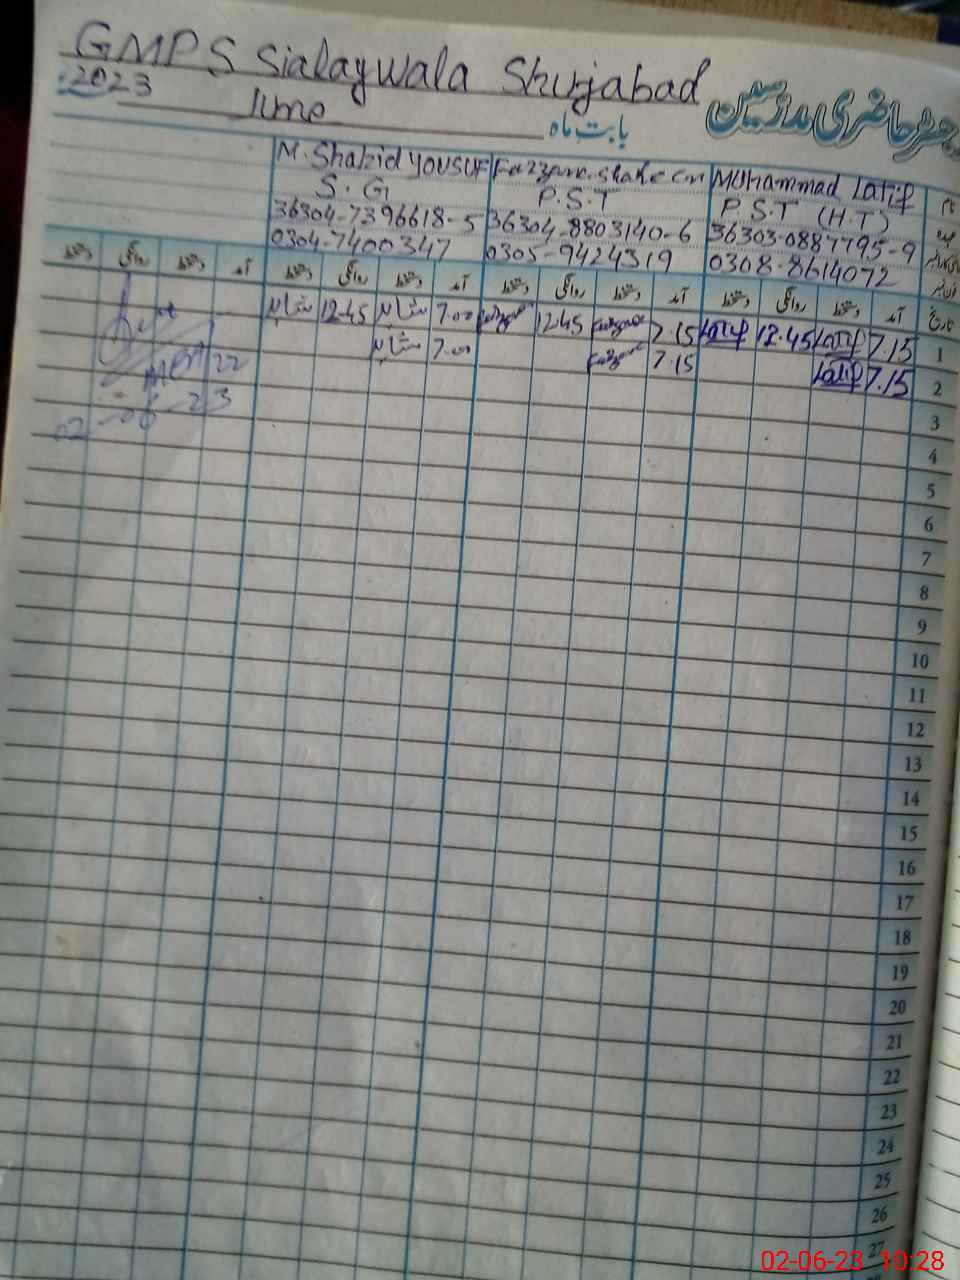 GMPS Sialaywala Shujabad
رجسٹر حاضری مدرسین
2023 June بابت ماہ
Muhammad Latif
P.S.T (H.T)
36303-0887795-9
0308-8614072
Farzana Shaheen
P.S.T
36304-8803140-6
0305-9424319
M. Shahid Yousuf
S.G
36304-7396618-5
0304-7400347
نام
عہدہ
تاریخ
آمد دستخط روانگی دستخط آمد دستخط روانگی دستخط آمد دستخط روانگی دستخط آمد دستخط روانگی دستخط
1 7.15 Latif 12.45 Latif 7.15 12.45 7.00 12.45
2 7.15 Latif 7.15 7.00
02-06-23
3
4
5
6
7
8
9
10
11
12
13
14
15
16
17
18
19
20
21
22
23
24
25
26
27
02-06-23 10:28